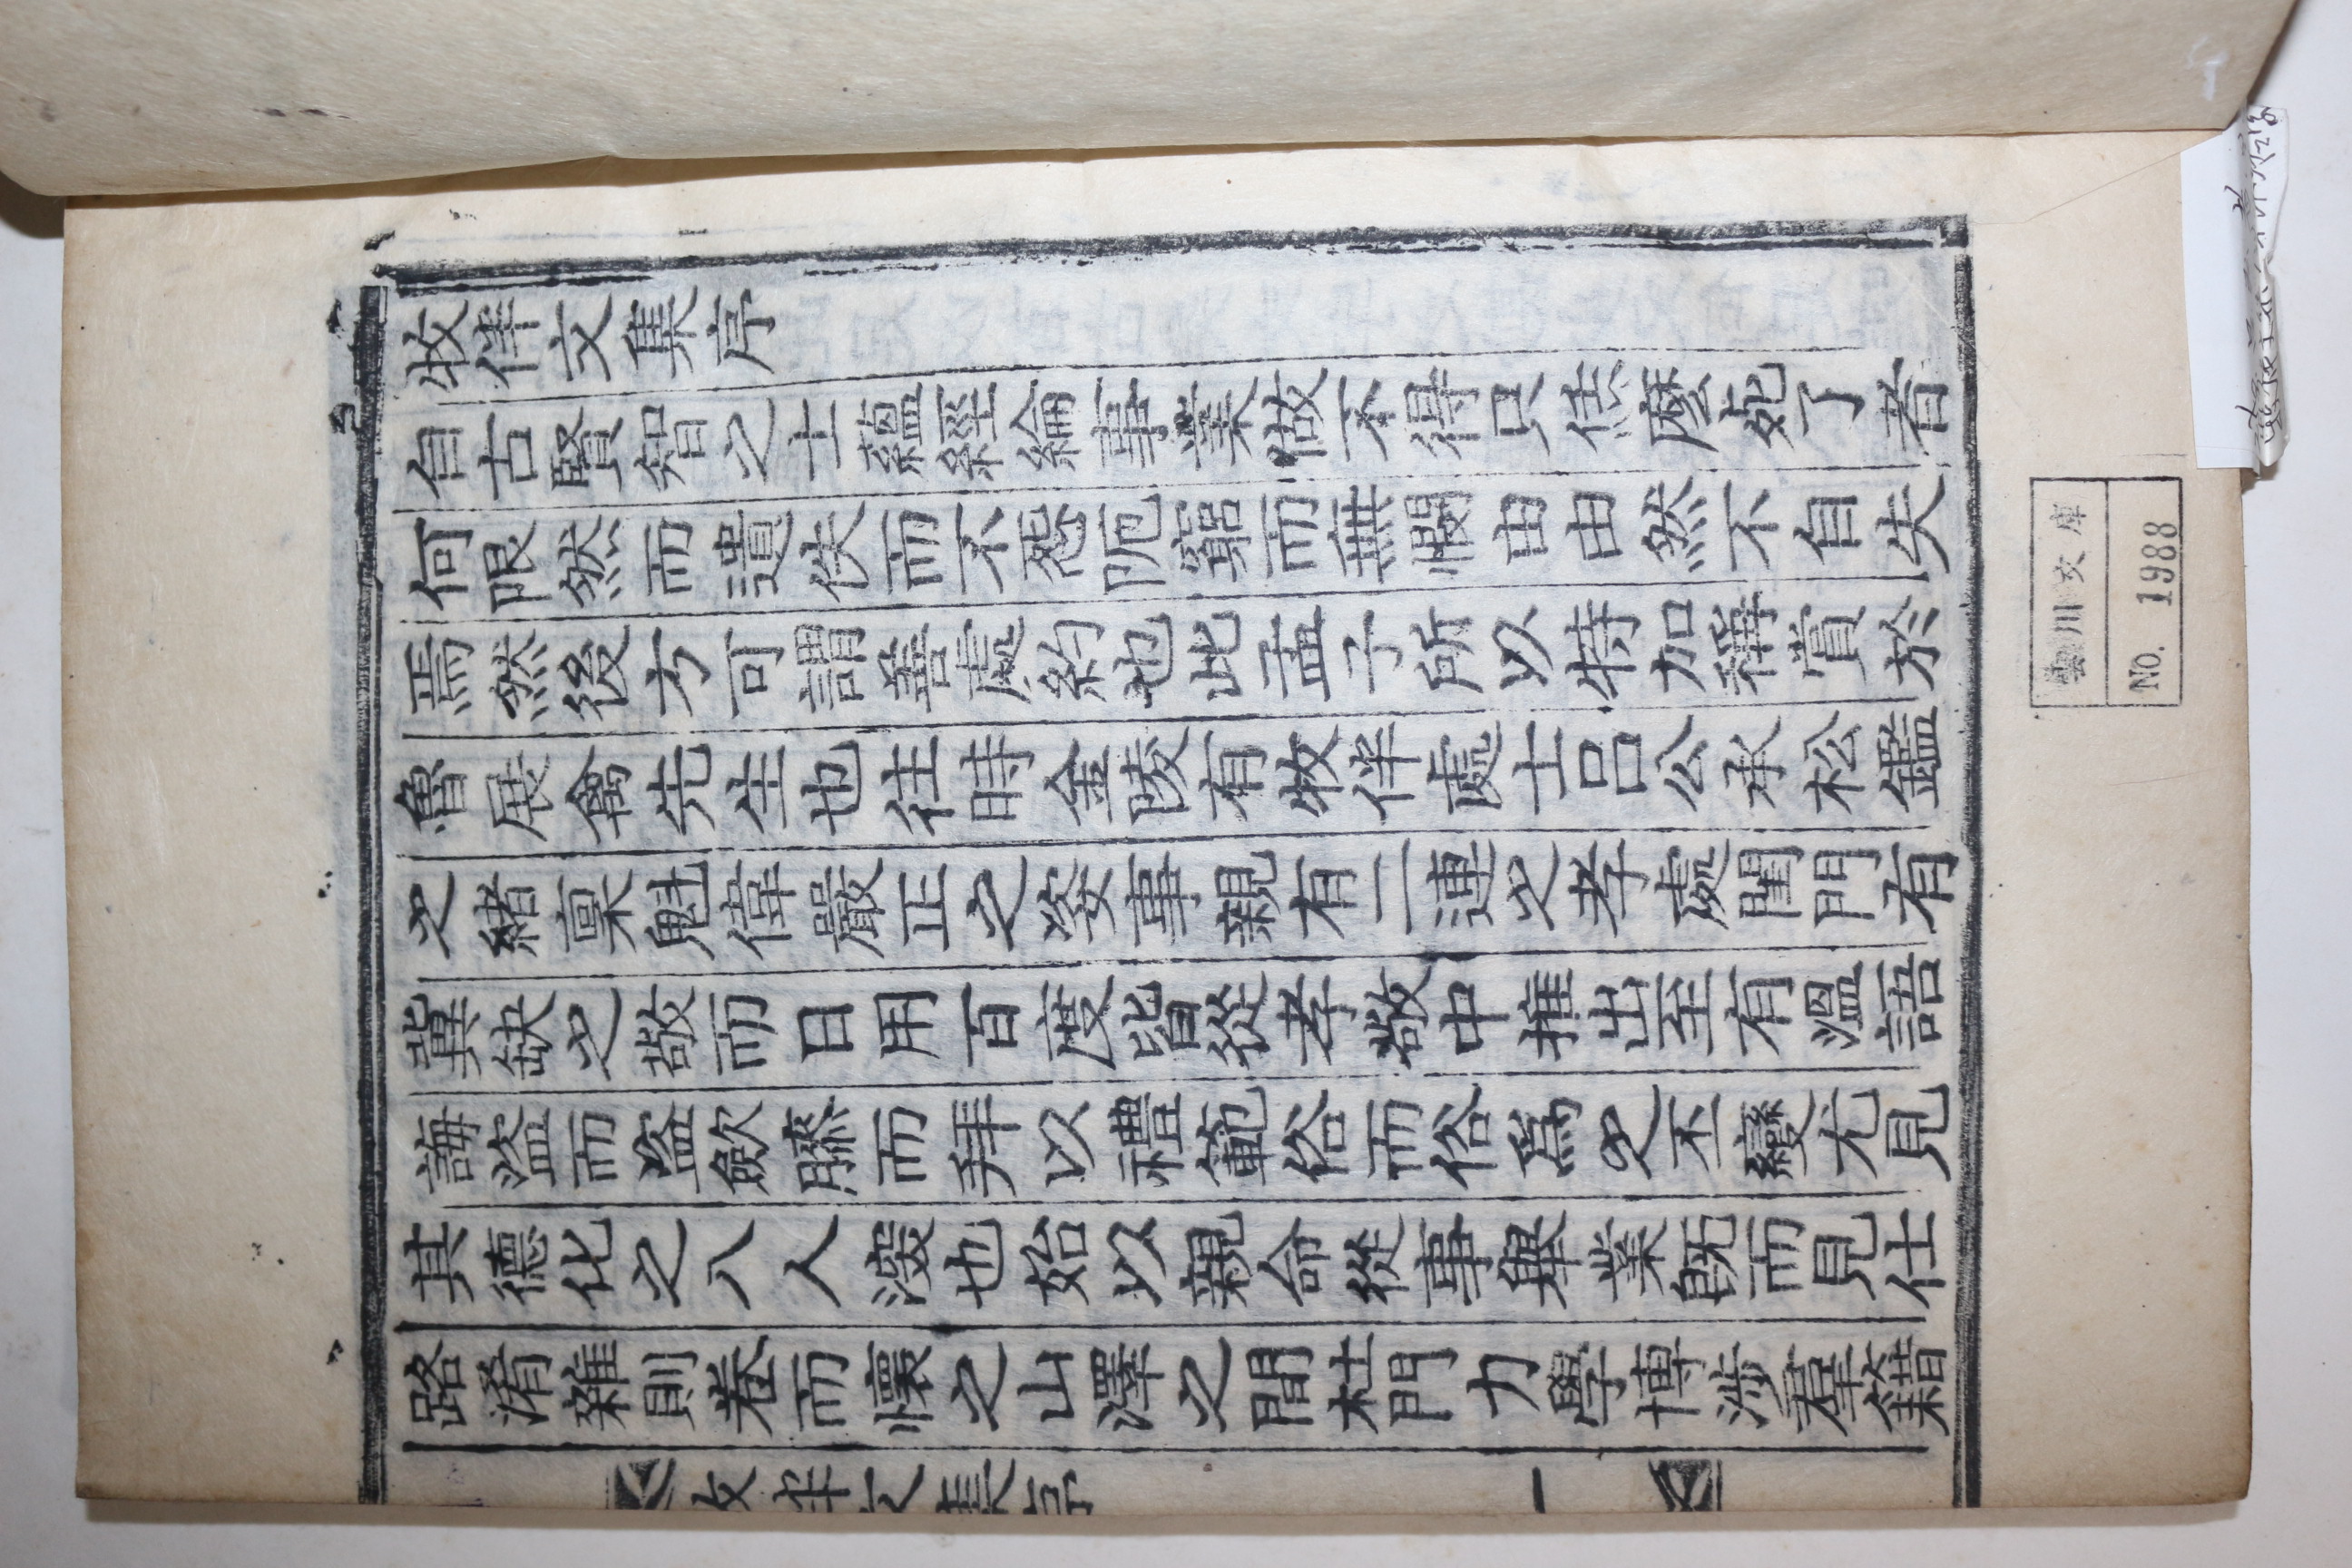 牧伴文集序
自古賢智之士蘊經綸事業做不得只恁麽死了者
何限然而遺佚而不怨阨窮而無憫由由然不自失
焉然後方可謂善處約也此孟子所以特加稱賞於
魯展禽先生也往時金陵有牧伴處士呂公承松鑑
之緖稟魁偉嚴正之姿事親有二連之孝處閨門有
冀缺之敬而日用百度皆從孝敬中推出至有溫語
誨盜而盜歛膝而拜以禮範俗而俗爲之丕變尤見
其德化之入人深也始以親命從事擧業旣而見仕
路淆雜則卷而懷之山澤之間杜門力學博涉羣籍
牧伴文集序
一
雲川文庫
NO. 1988